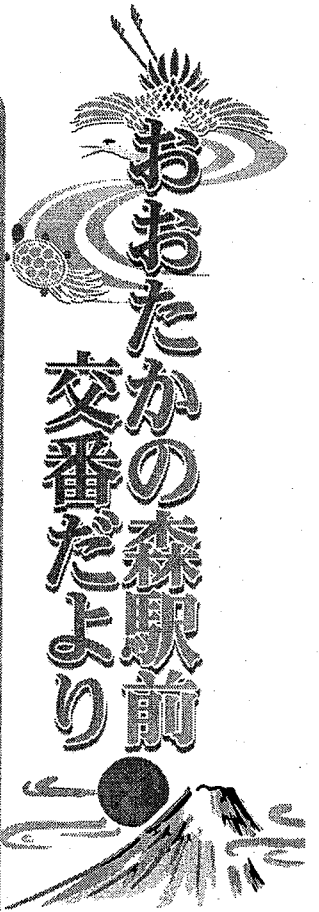 おおたかの森駅前
交番だより